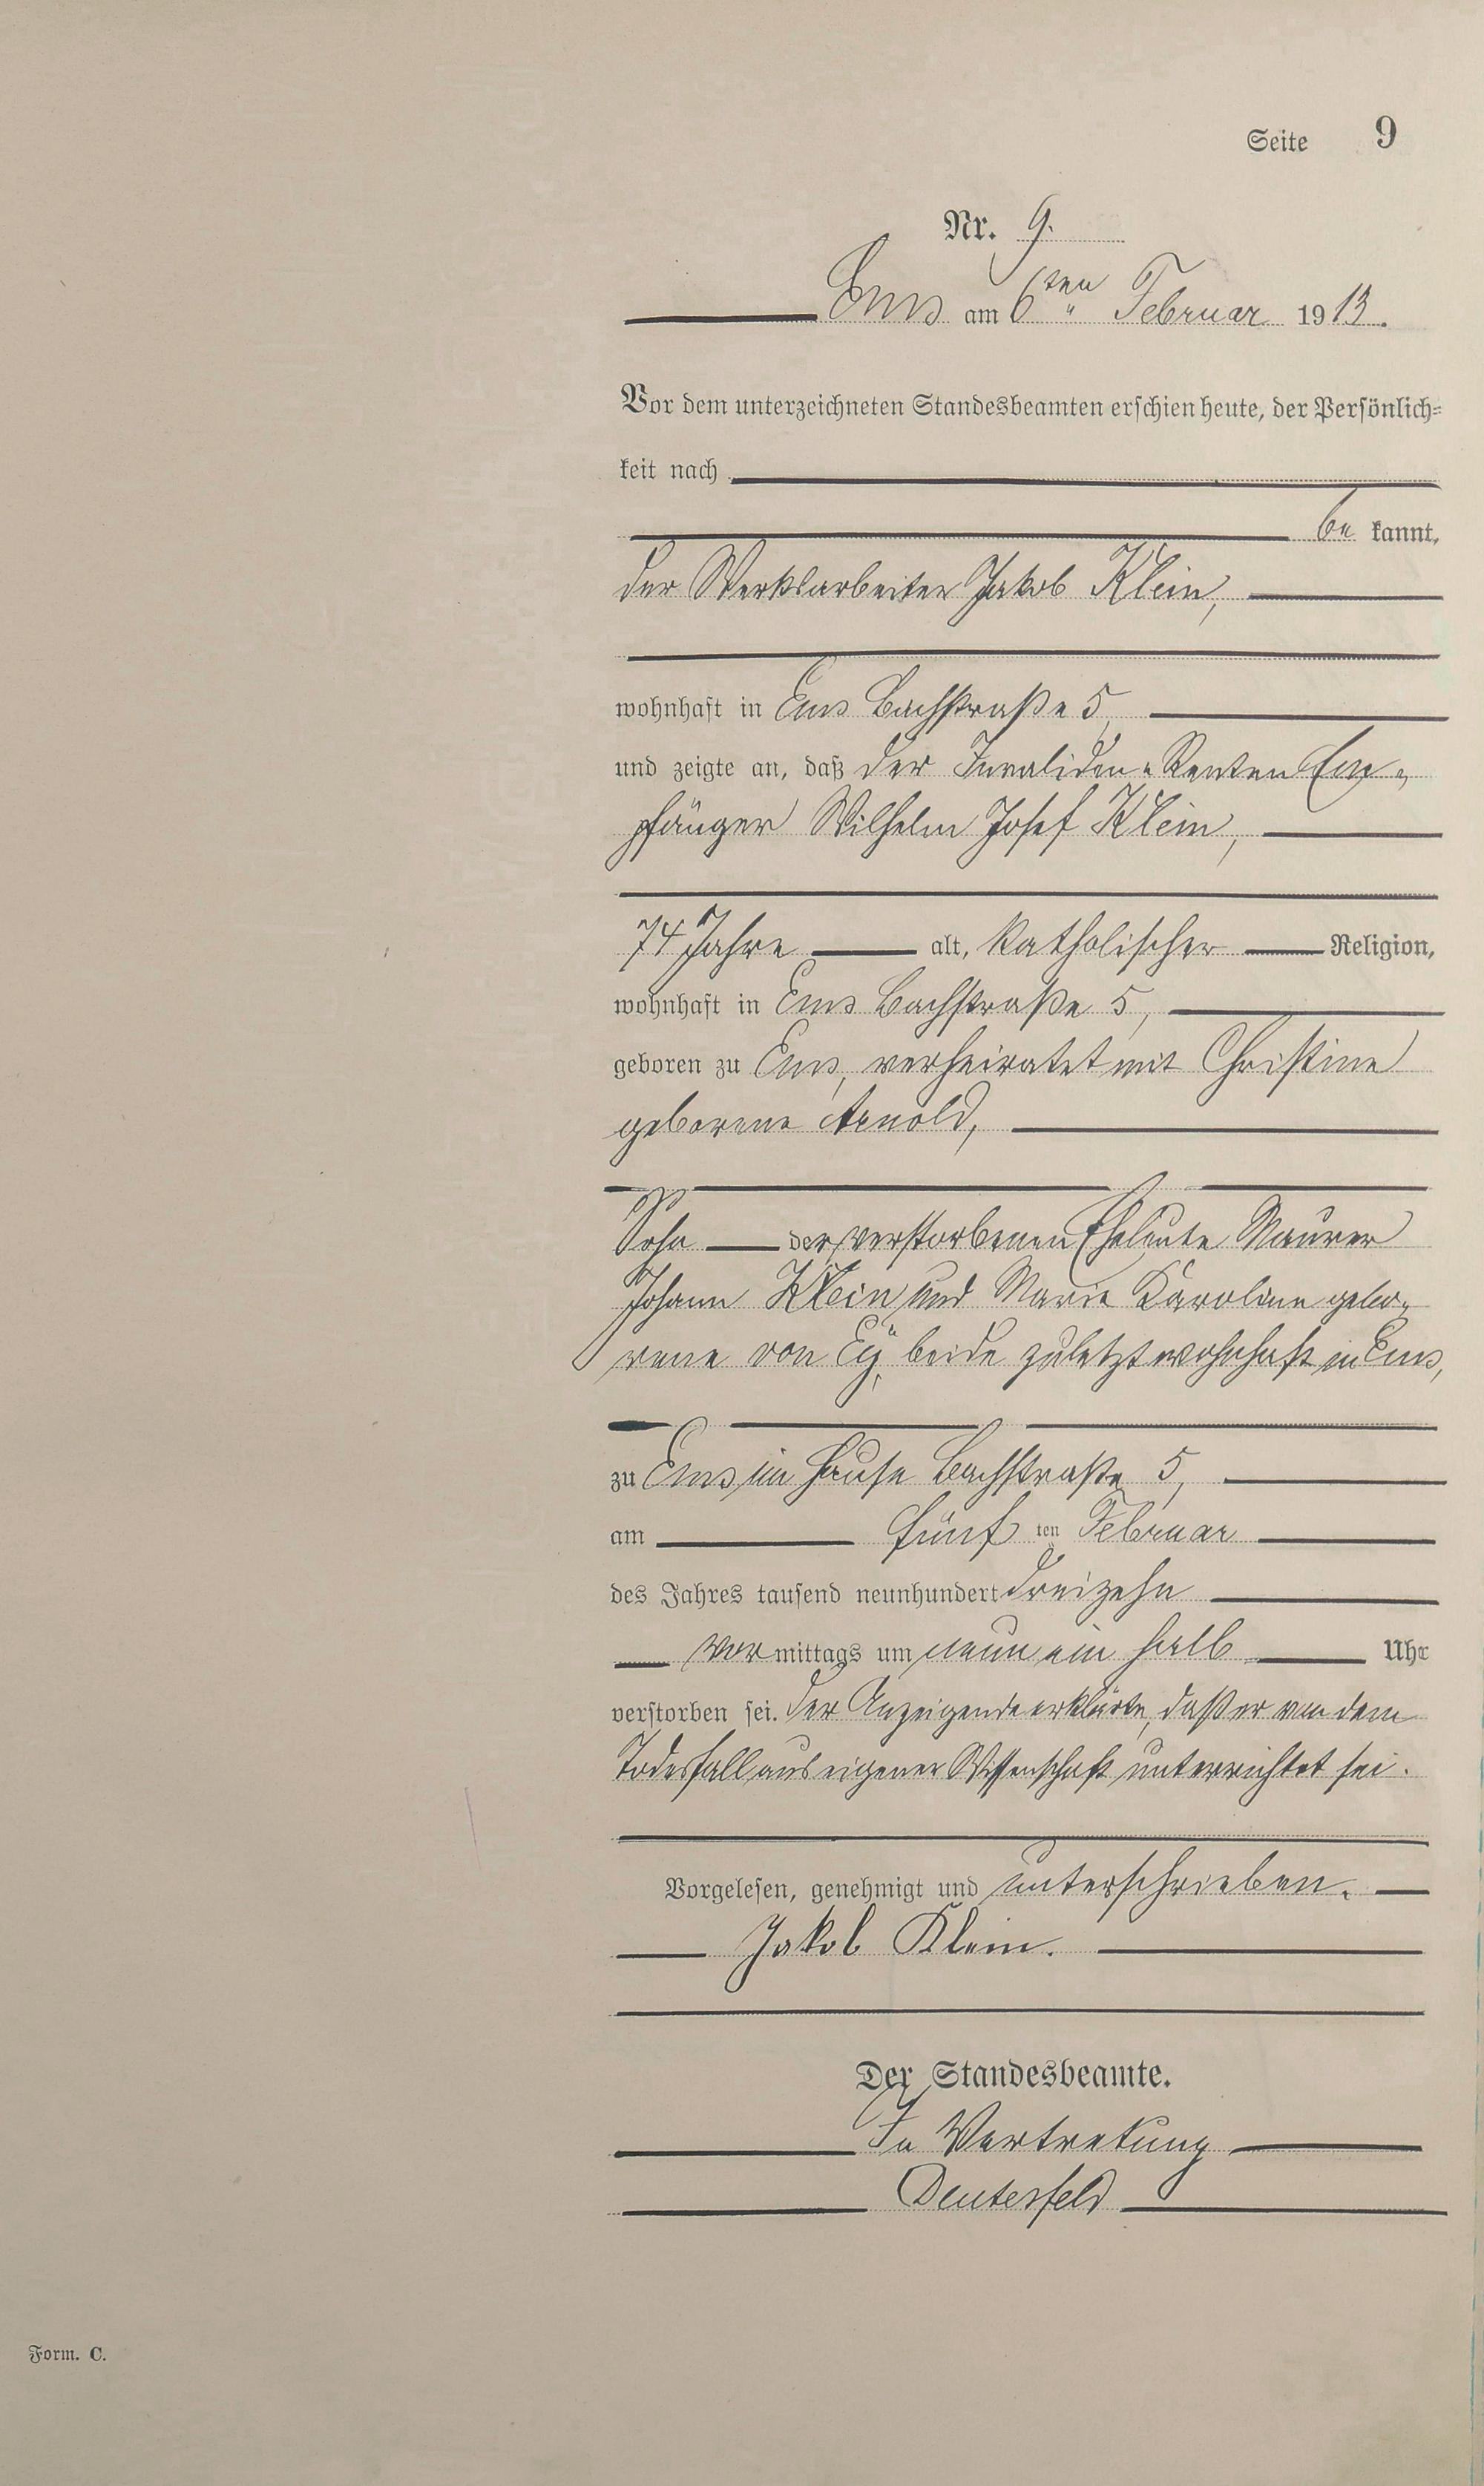 Seite 9
Nr. 9.
Ems am 6ten Februar 1913.
Vor dem unterzeichneten Standesbeamten erschien heute, der Persönlich=
keit nach
be kannt,
der Werksarbeiter Jakob Klein,
wohnhaft in Ems Bachstraße 5
und zeigte an, daß der Invaliden-Renten Em-
pfänger Wilhelm Josef Klein,
74 Jahre alt, katholischer Religion,
wohnhaft in Ems Bachstraße 5,
geboren zu Ems, verheiratet mit Christine
geborene Arnold,
Sohn der verstorbenen Eheleute Maurer
Johann Klein und Marie Karoline gebo-
rene von Eÿ, beide zuletzt wohnhaft in Ems,
zu Ems im Hause Bachstraße 5,
am fünf ten Februar
des Jahres tausend neunhundert dreizehn
vor mittags um neun ein halb Uhr
verstorben sei. Der Anzeigende erklärte, daß er von dem
Todesfall aus eigener Wissenschaft unterrichtet sei.
Vorgelesen, genehmigt und unterschrieben.
Jakob Klein.
Der Standesbeamte.
In Vertretung
Deutesfeld
Form. C.